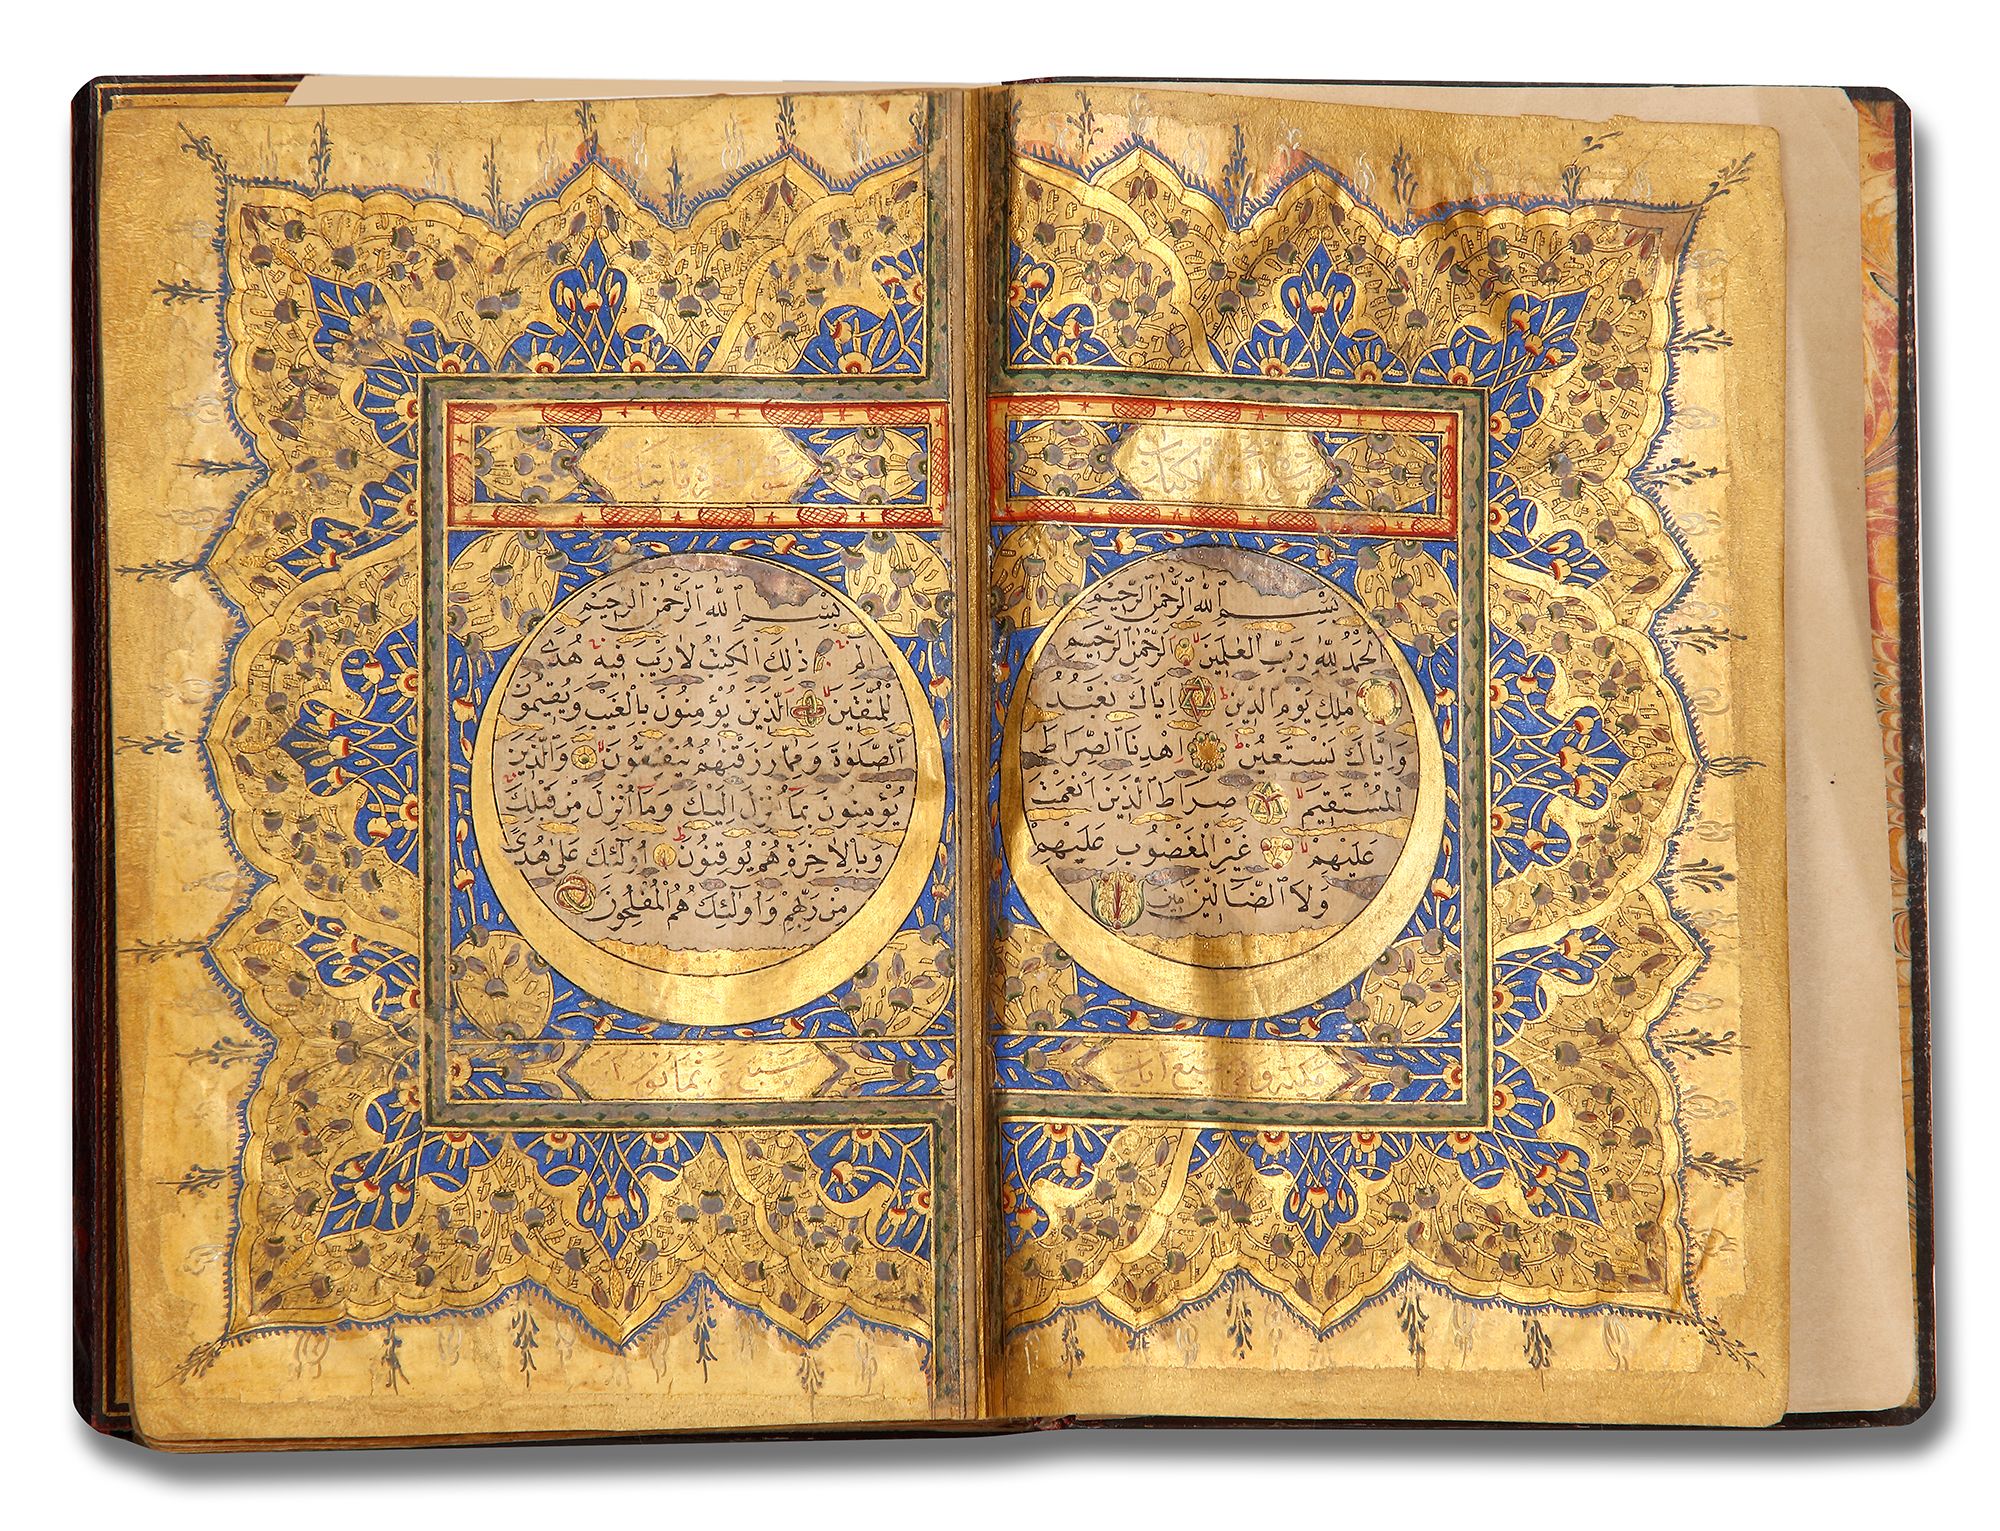 سورة فاتحة الكتاب
بِسْمِ ٱللهِ ٱلرَّحْمٰنِ ٱلرَّحِيْمِ
اَلْحَمْدُ لِلّٰهِ رَبِّ ٱلْعٰلَمِيْنَ ٱلرَّحْمٰنِ ٱلرَّحِيْمِ
مٰلِكِ يَوْمِ ٱلدِّيْنِ ط اِيَّاكَ نَعْبُدُ
وَاِيَّاكَ نَسْتَعِيْنُ ط اِهْدِنَا ٱلصِّرَاطَ
ٱلْمُسْتَقِيْمَ لا صِرَاطَ ٱلَّذِيْنَ اَنْعَمْتَ
عَلَيْهِمْ لا غَيْرِ ٱلْمَغْضُوْبِ عَلَيْهِمْ
وَلَا ٱلضَّآلِّيْنَ
مكية وهي سبع آيات
سورة البقرة مائتان
بِسْمِ ٱللهِ ٱلرَّحْمٰنِ ٱلرَّحِيْمِ
الٓمٓ ذٰلِكَ ٱلْكِتٰبُ لَا رَيْبَ فِيْهِ هُدًى
لِلْمُتَّقِيْنَ لا ٱلَّذِيْنَ يُؤْمِنُوْنَ بِالْغَيْبِ وَيُقِيْمُوْنَ
ٱلصَّلٰوةَ وَمِمَّا رَزَقْنٰهُمْ يُنْفِقُوْنَ لا وَٱلَّذِيْنَ
يُؤْمِنُوْنَ بِمَآ اُنْزِلَ اِلَيْكَ وَمَآ اُنْزِلَ مِنْ قَبْلِكَ
وَبِالْاٰخِرَةِ هُمْ يُوْقِنُوْنَ ط اُولٰٓئِكَ عَلٰى هُدًى
مِنْ رَبِّهِمْ وَاُولٰٓئِكَ هُمُ ٱلْمُفْلِحُوْنَ